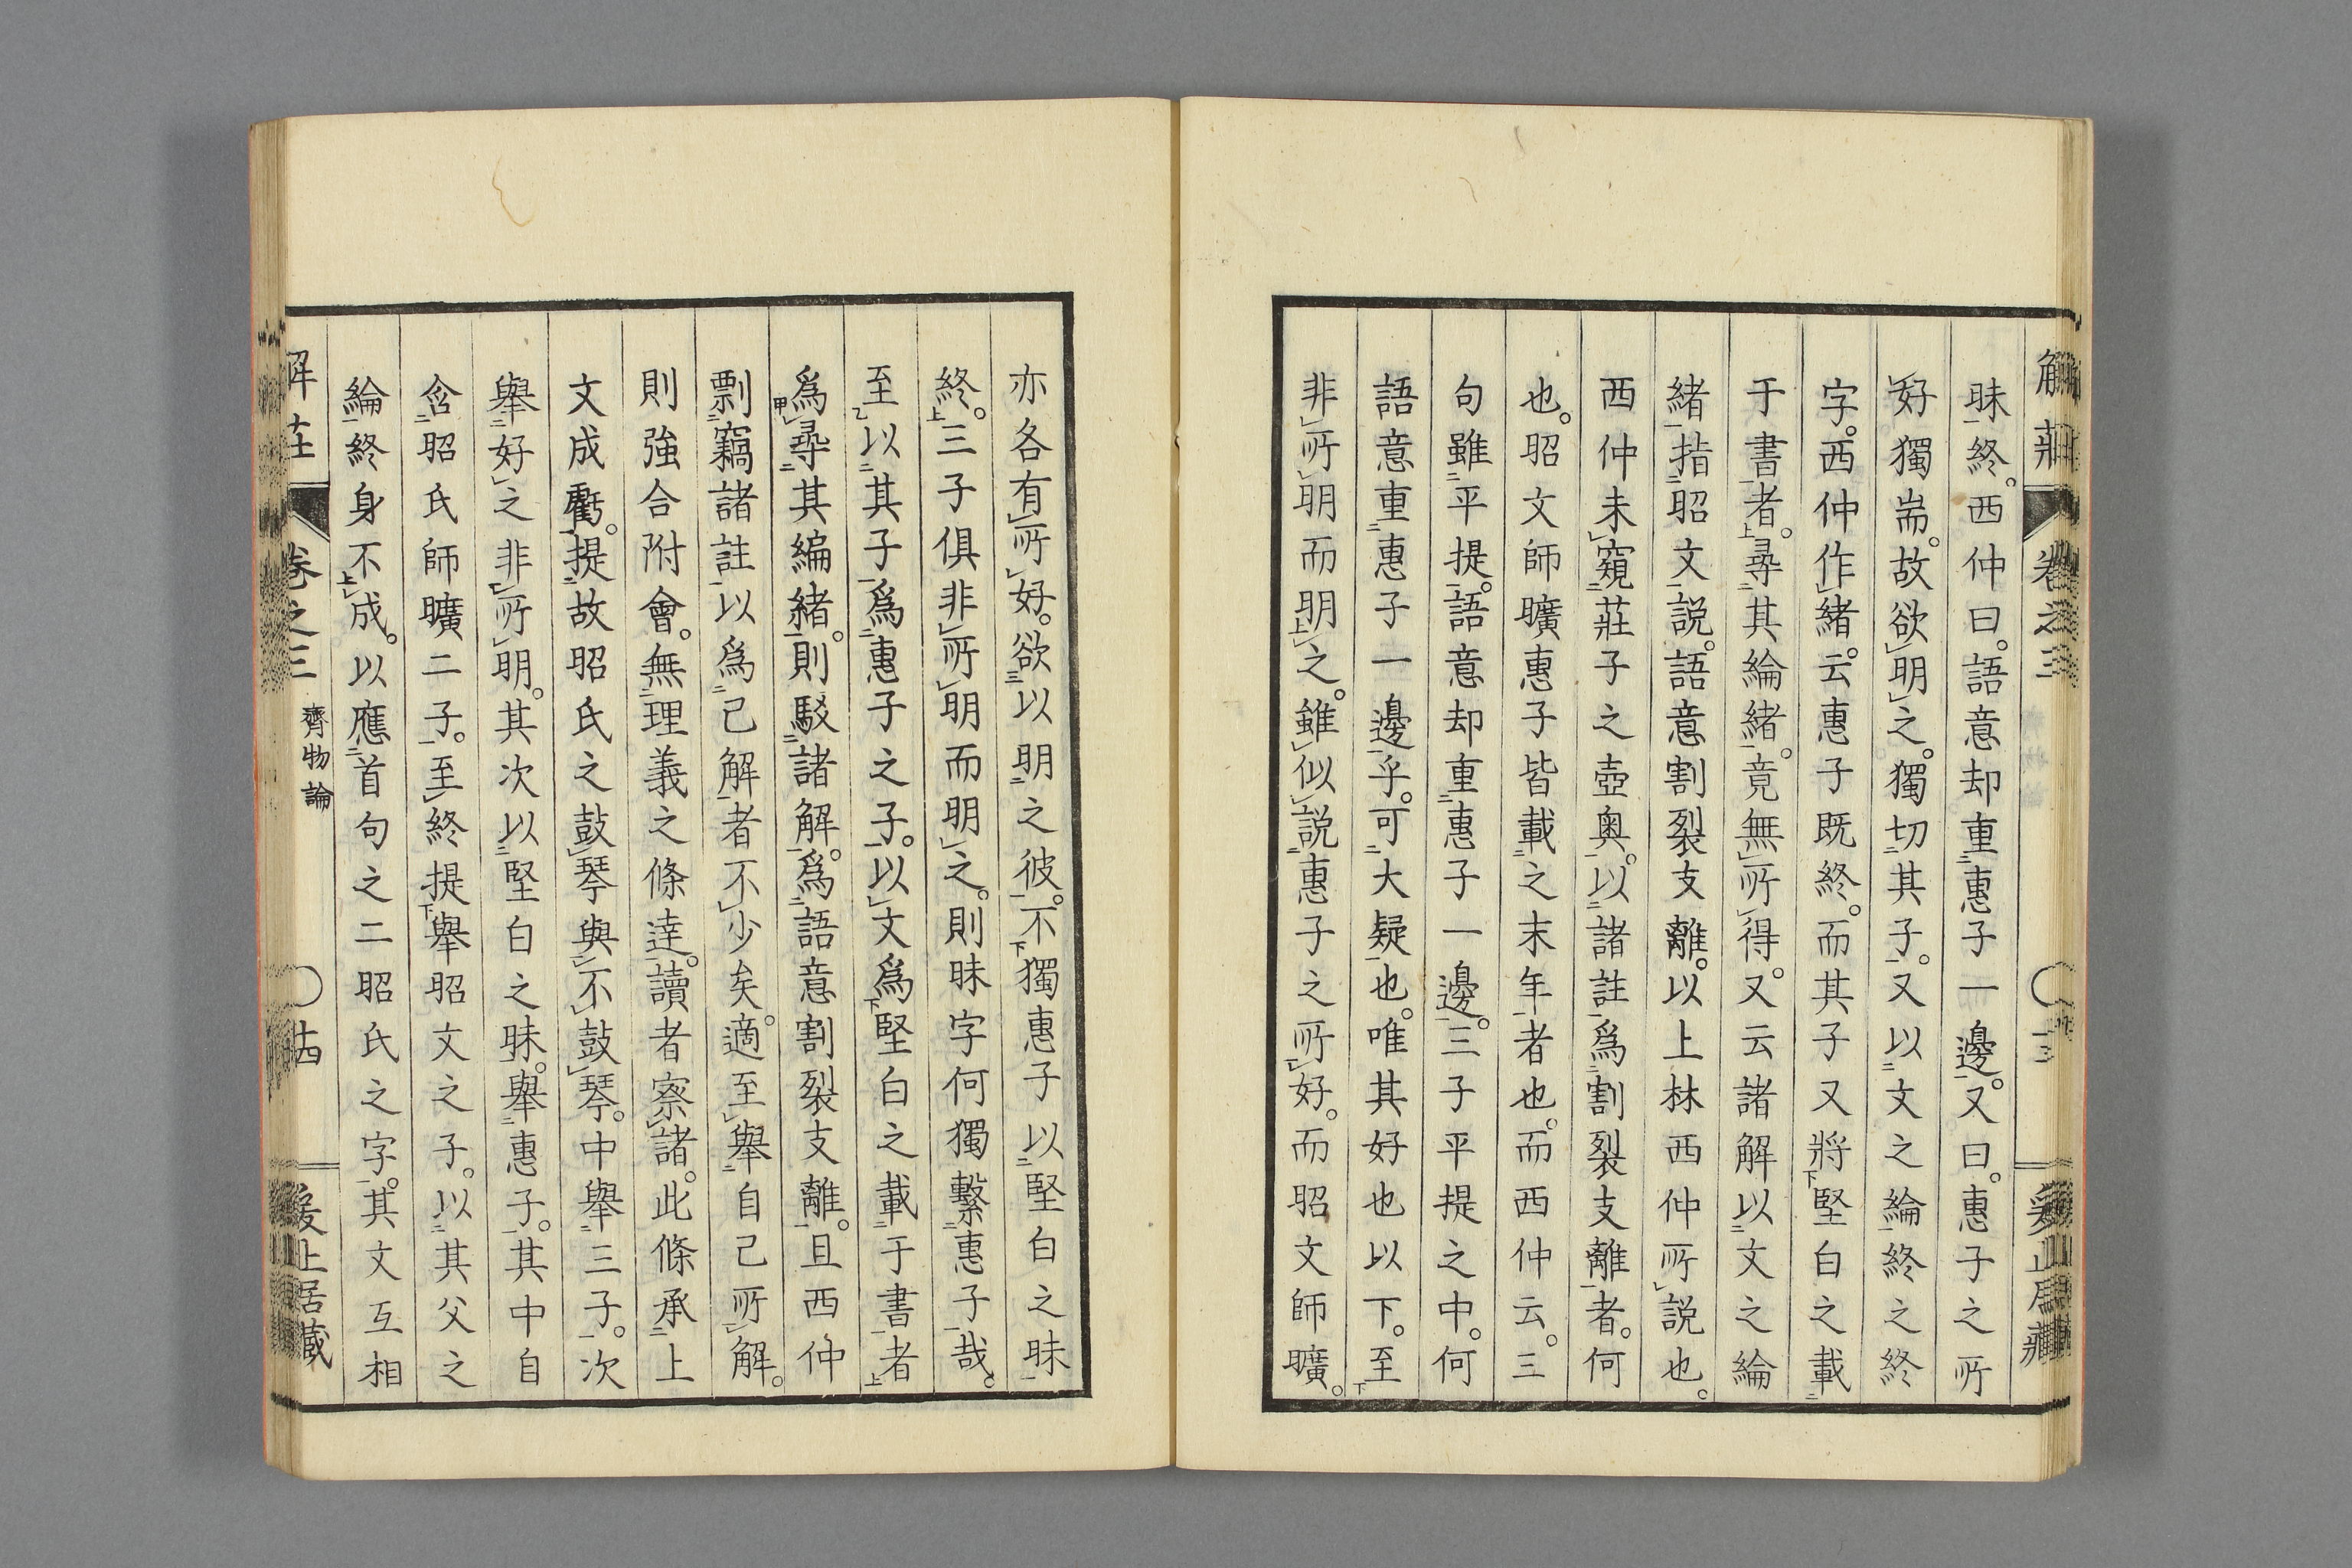 解莊 卷之三 〇 十三 爰止居藏
昧終。西仲曰。語意却重惠子一邊。又曰。惠子之所
好獨耑。故欲明之。獨切其子。又以文之綸終之終
字。西仲作緒。云惠子既終。而其子又將堅白之載
于書者。尋其綸緒。竟無所得。又云諸解以文之綸
緒指昭文說。語意割裂支離。以上林西仲所說也。
西仲未窺莊子之壺奧。以諸註爲割裂支離者。何
也。昭文師曠惠子皆載之末年者也。而西仲云。三
句雖平提。語意却重惠子一邊。三子平提之中。何
語意重惠子一邊乎。可大疑也。唯其好也以下。至
非所明而明之。雖似說惠子之所好。而昭文師曠。
亦各有所好。欲以明之彼。不獨惠子以堅白之昧
終。三子俱非所明而明之。則昧字何獨繫惠子哉。
至以其子爲惠子之子。以文爲堅白之載于書者
爲尋其編緒。則駁諸解。爲語意割裂支離。且西仲
剽竊諸註以爲己解者不少矣。適至舉自己所解。
則強合附會。無理義之條達。讀者察諸。此條承上
文成虧。提故昭氏之鼓琴與不鼓琴。中舉三子。次
舉好之非所明。其次以堅白之昧。舉惠子。其中自
含昭氏師曠二子。至終提舉昭文之子。以其父之
綸終身不成。以應首句之二昭氏之字。其文互相
解莊 卷之三 齊物論 〇 十四 爰止居藏